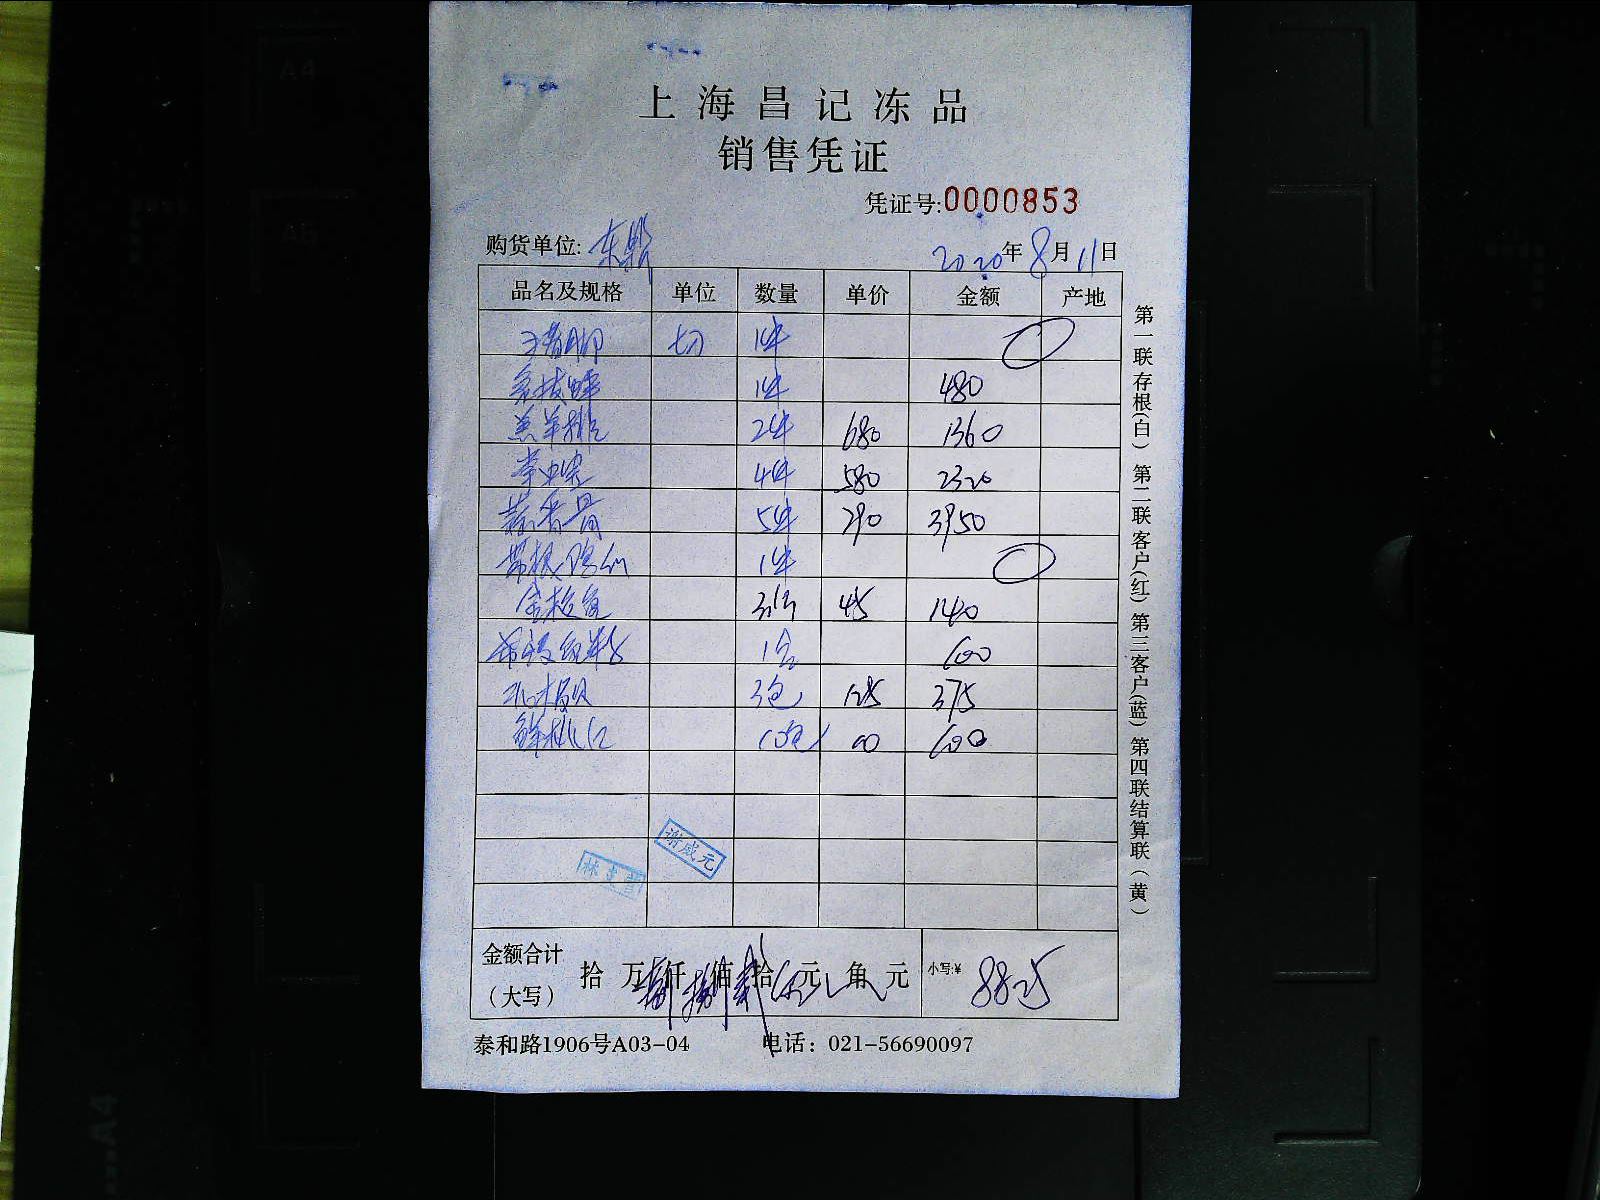 上海昌记冻品
销售凭证
凭证号:0000853
购货单位: 东 2020年8月11日
品名及规格 单位 数量 单价 金额 产地
猪脚 切 1件
1件 480
羔羊排 2件 680 1360
掌中宝 4件 580 2320
蒜香骨 5件 790 3950
1件
金枪鱼 45 140
1 600
3包 125 375
10包 60 600
谢咸元
林
金额合计 拾 万 仟 佰 拾 元 角 元 小写:¥ 8825
(大写)
泰和路1906号A03-04 电话: 021-56690097
第一联存根(白) 第二联客户(红) 第三客户(蓝) 第四联结算联(黄)